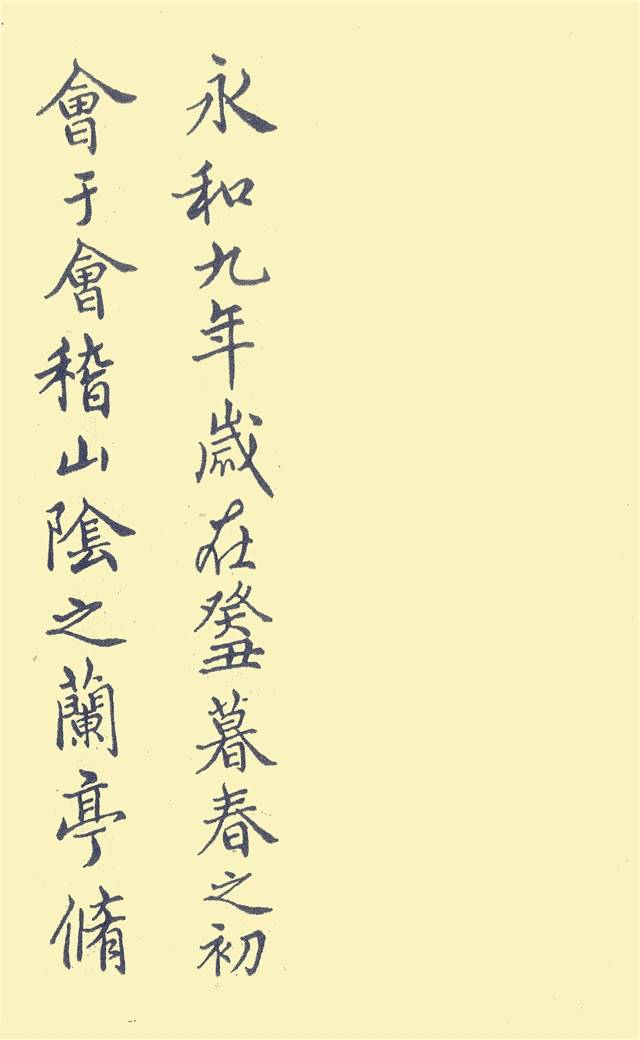 永和九年歲在癸丑暮春之初
會于會稽山陰之蘭亭脩